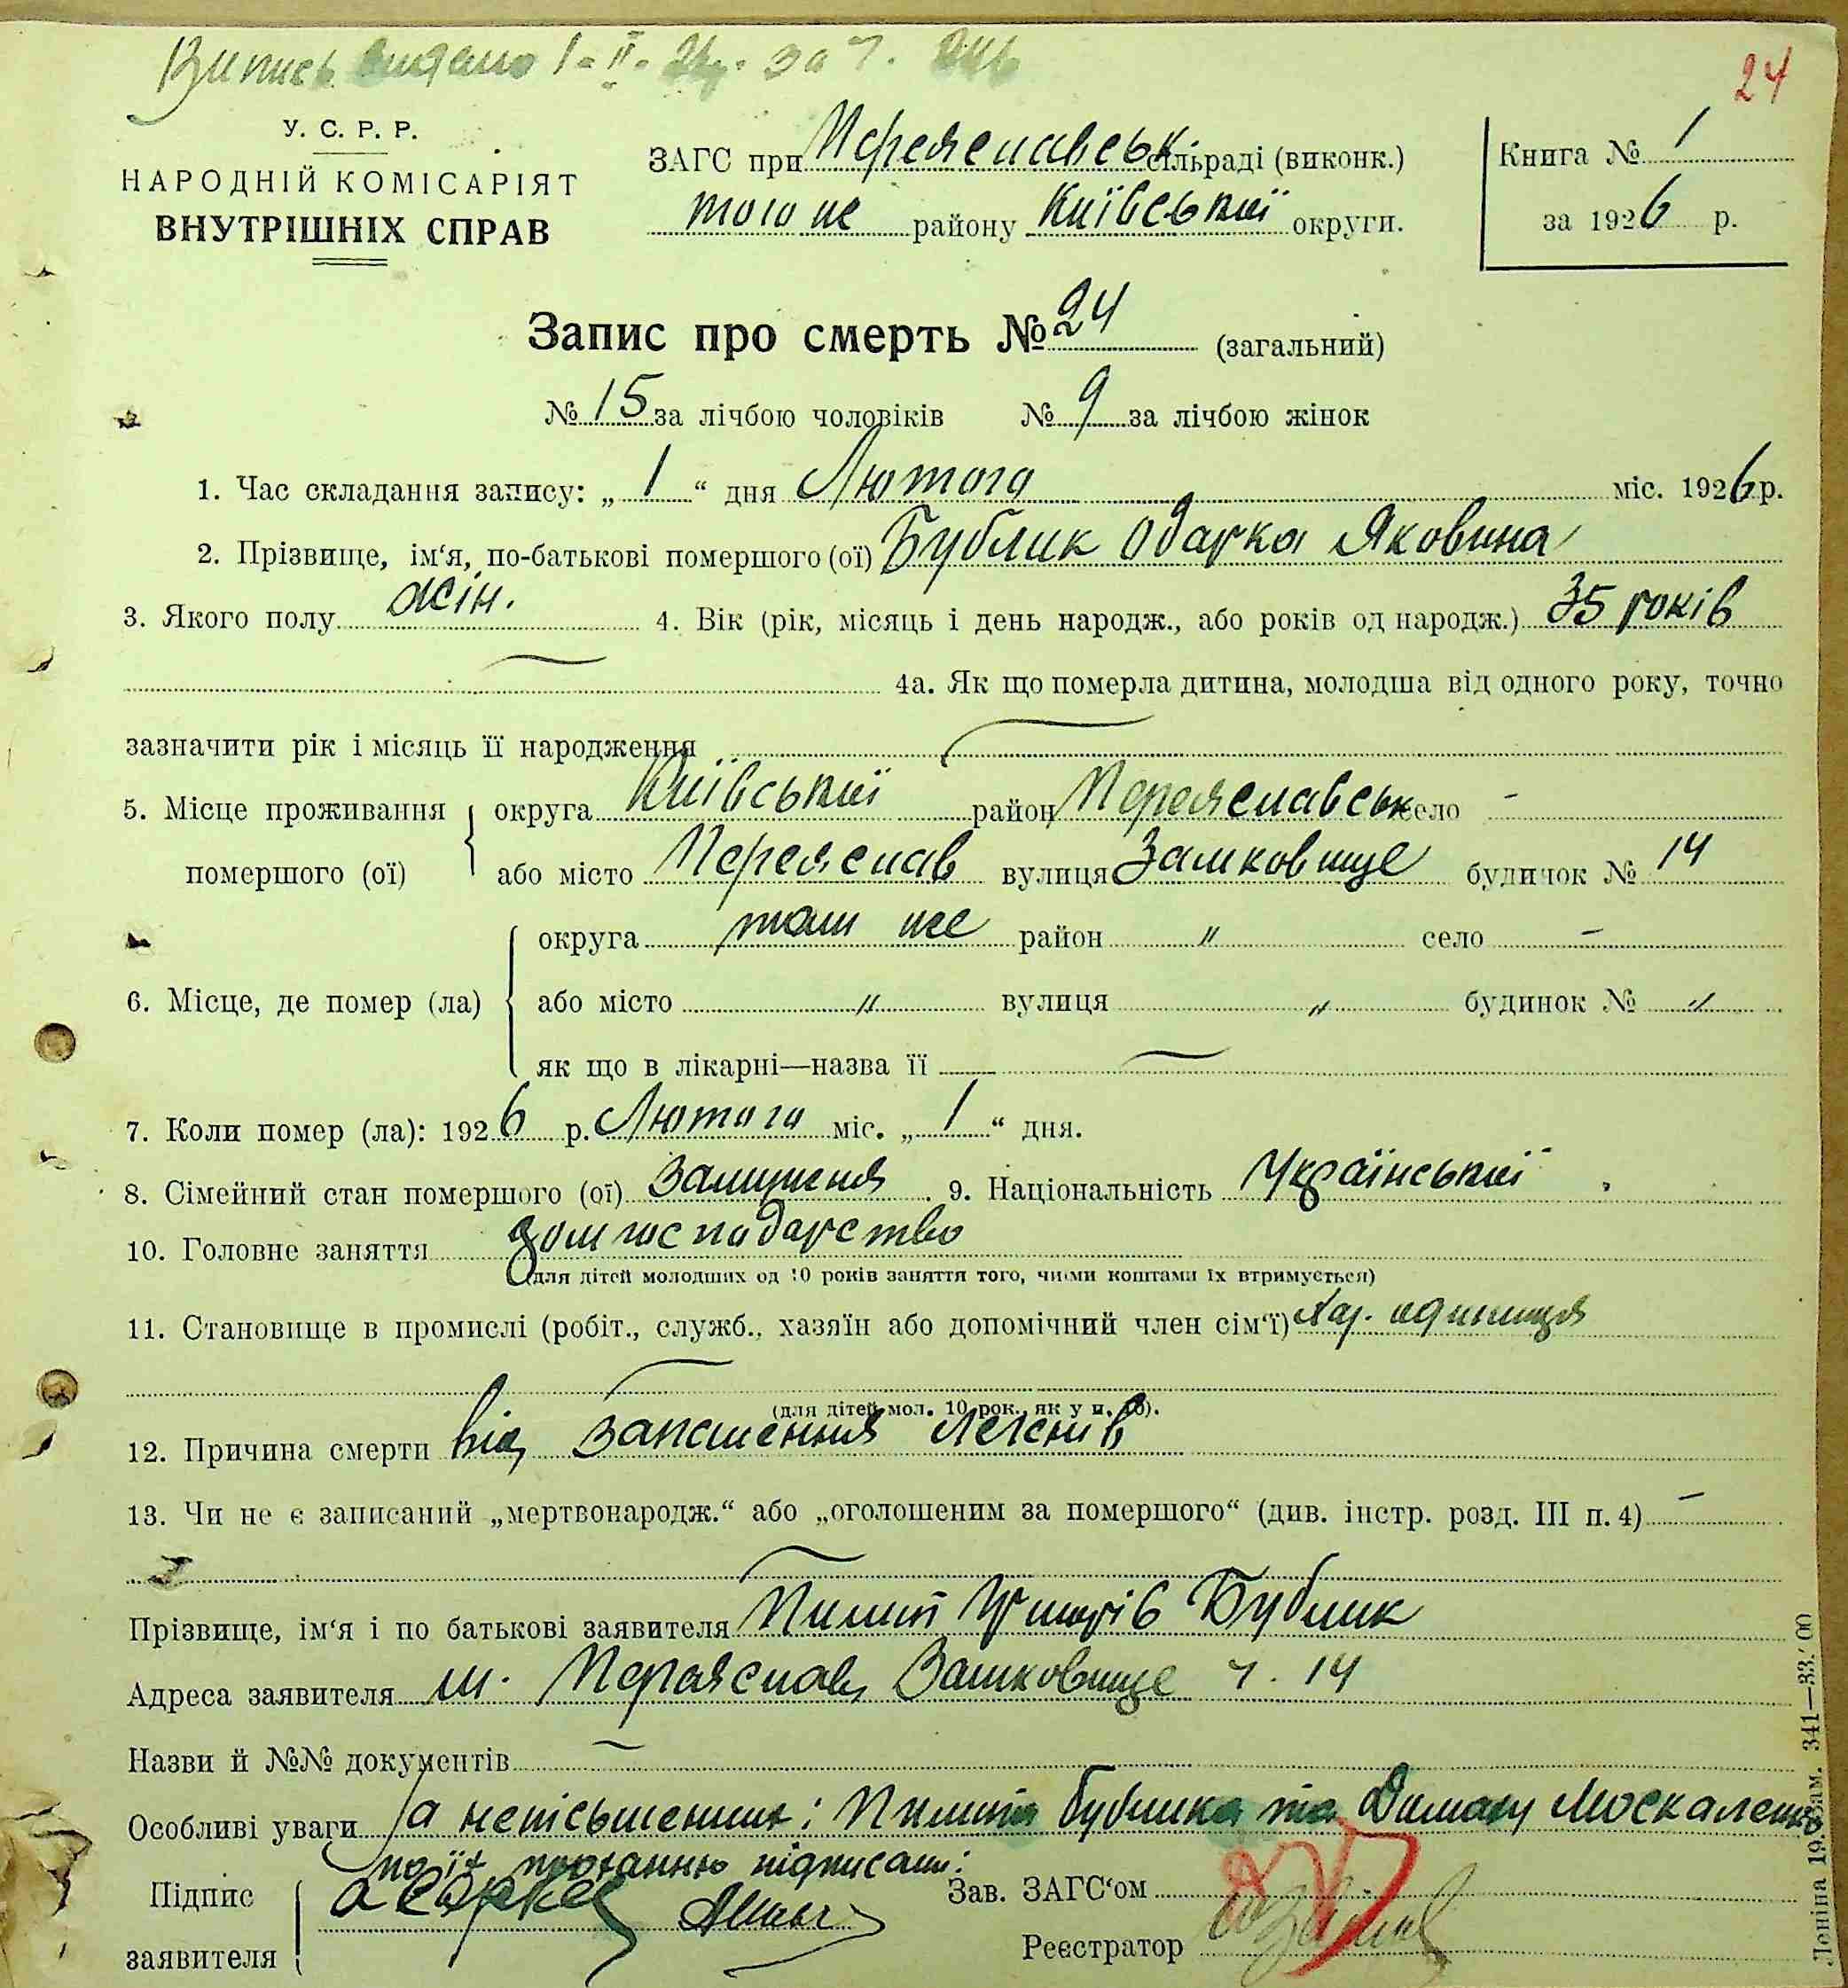 Випись видано 1-II-26р. за ч.
24
У. С. Р. Р.
НАРОДНІЙ КОМІСАРІЯТ
ВНУТРІШНІХ СПРАВ
ЗАГС при Переяславськ сільраді (виконк.)
того ж району Київської округи.
Книга № 1
за 1926 р.
Запис про смерть № 24 (загальний)
№ 15 за лічбою чоловіків № 9 за лічбою жінок
1. Час складання запису: „ 1 “ дня Лютого міс. 1926 р.
2. Прізвище, ім‘я, по-батькові помершого (ої) Бублик Одарка Яковина
3. Якого полу жін. 4. Вік (рік, місяць і день народж., або років од народж.) 35 років
4а. Як що померла дитина, молодша від одного року, точно
зазначити рік і місяць її народження
5. Місце проживання помершого (ої) округа Київської район Переяславськ село -
або місто Переяслав вулиця Замковище будинок № 14
6. Місце, де помер (ла) округа там же район " село -
або місто " вулиця " будинок № "
як що в лікарні—назва її
7. Коли помер (ла): 1926 р. Лютого міс. „ 1 “ дня.
8. Сімейний стан помершого (ої) Замужня . 9. Національність Української
10. Головне заняття домгосподарство
(для дітей молодших од 10 років заняття того, чиїми коштами їх втримується)
11. Становище в промислі (робіт., служб., хазяїн або допомічний член сім‘ї) Хаз. одиниця
(для дітей мол. 10 рок., як у п. 10).
12. Причина смерти від запалення легенів
13. Чи не є записаний „мертвонародж.“ або „оголошеним за помершого“ (див. інстр. розд. III п. 4) -
Прізвище, ім‘я і по батькові заявителя Пилип Бублик
Адреса заявителя м. Переяслав, Замковище ч. 14
Назви й №№ документів
Особливі уваги За неписьменних: Пилипа Бублика та Москаленко
по їх проханню підписали:
Підпис заявителя
Зав. ЗАГС‘ом
Реєстратор
Леніна 19. Зам. 341—33.'00